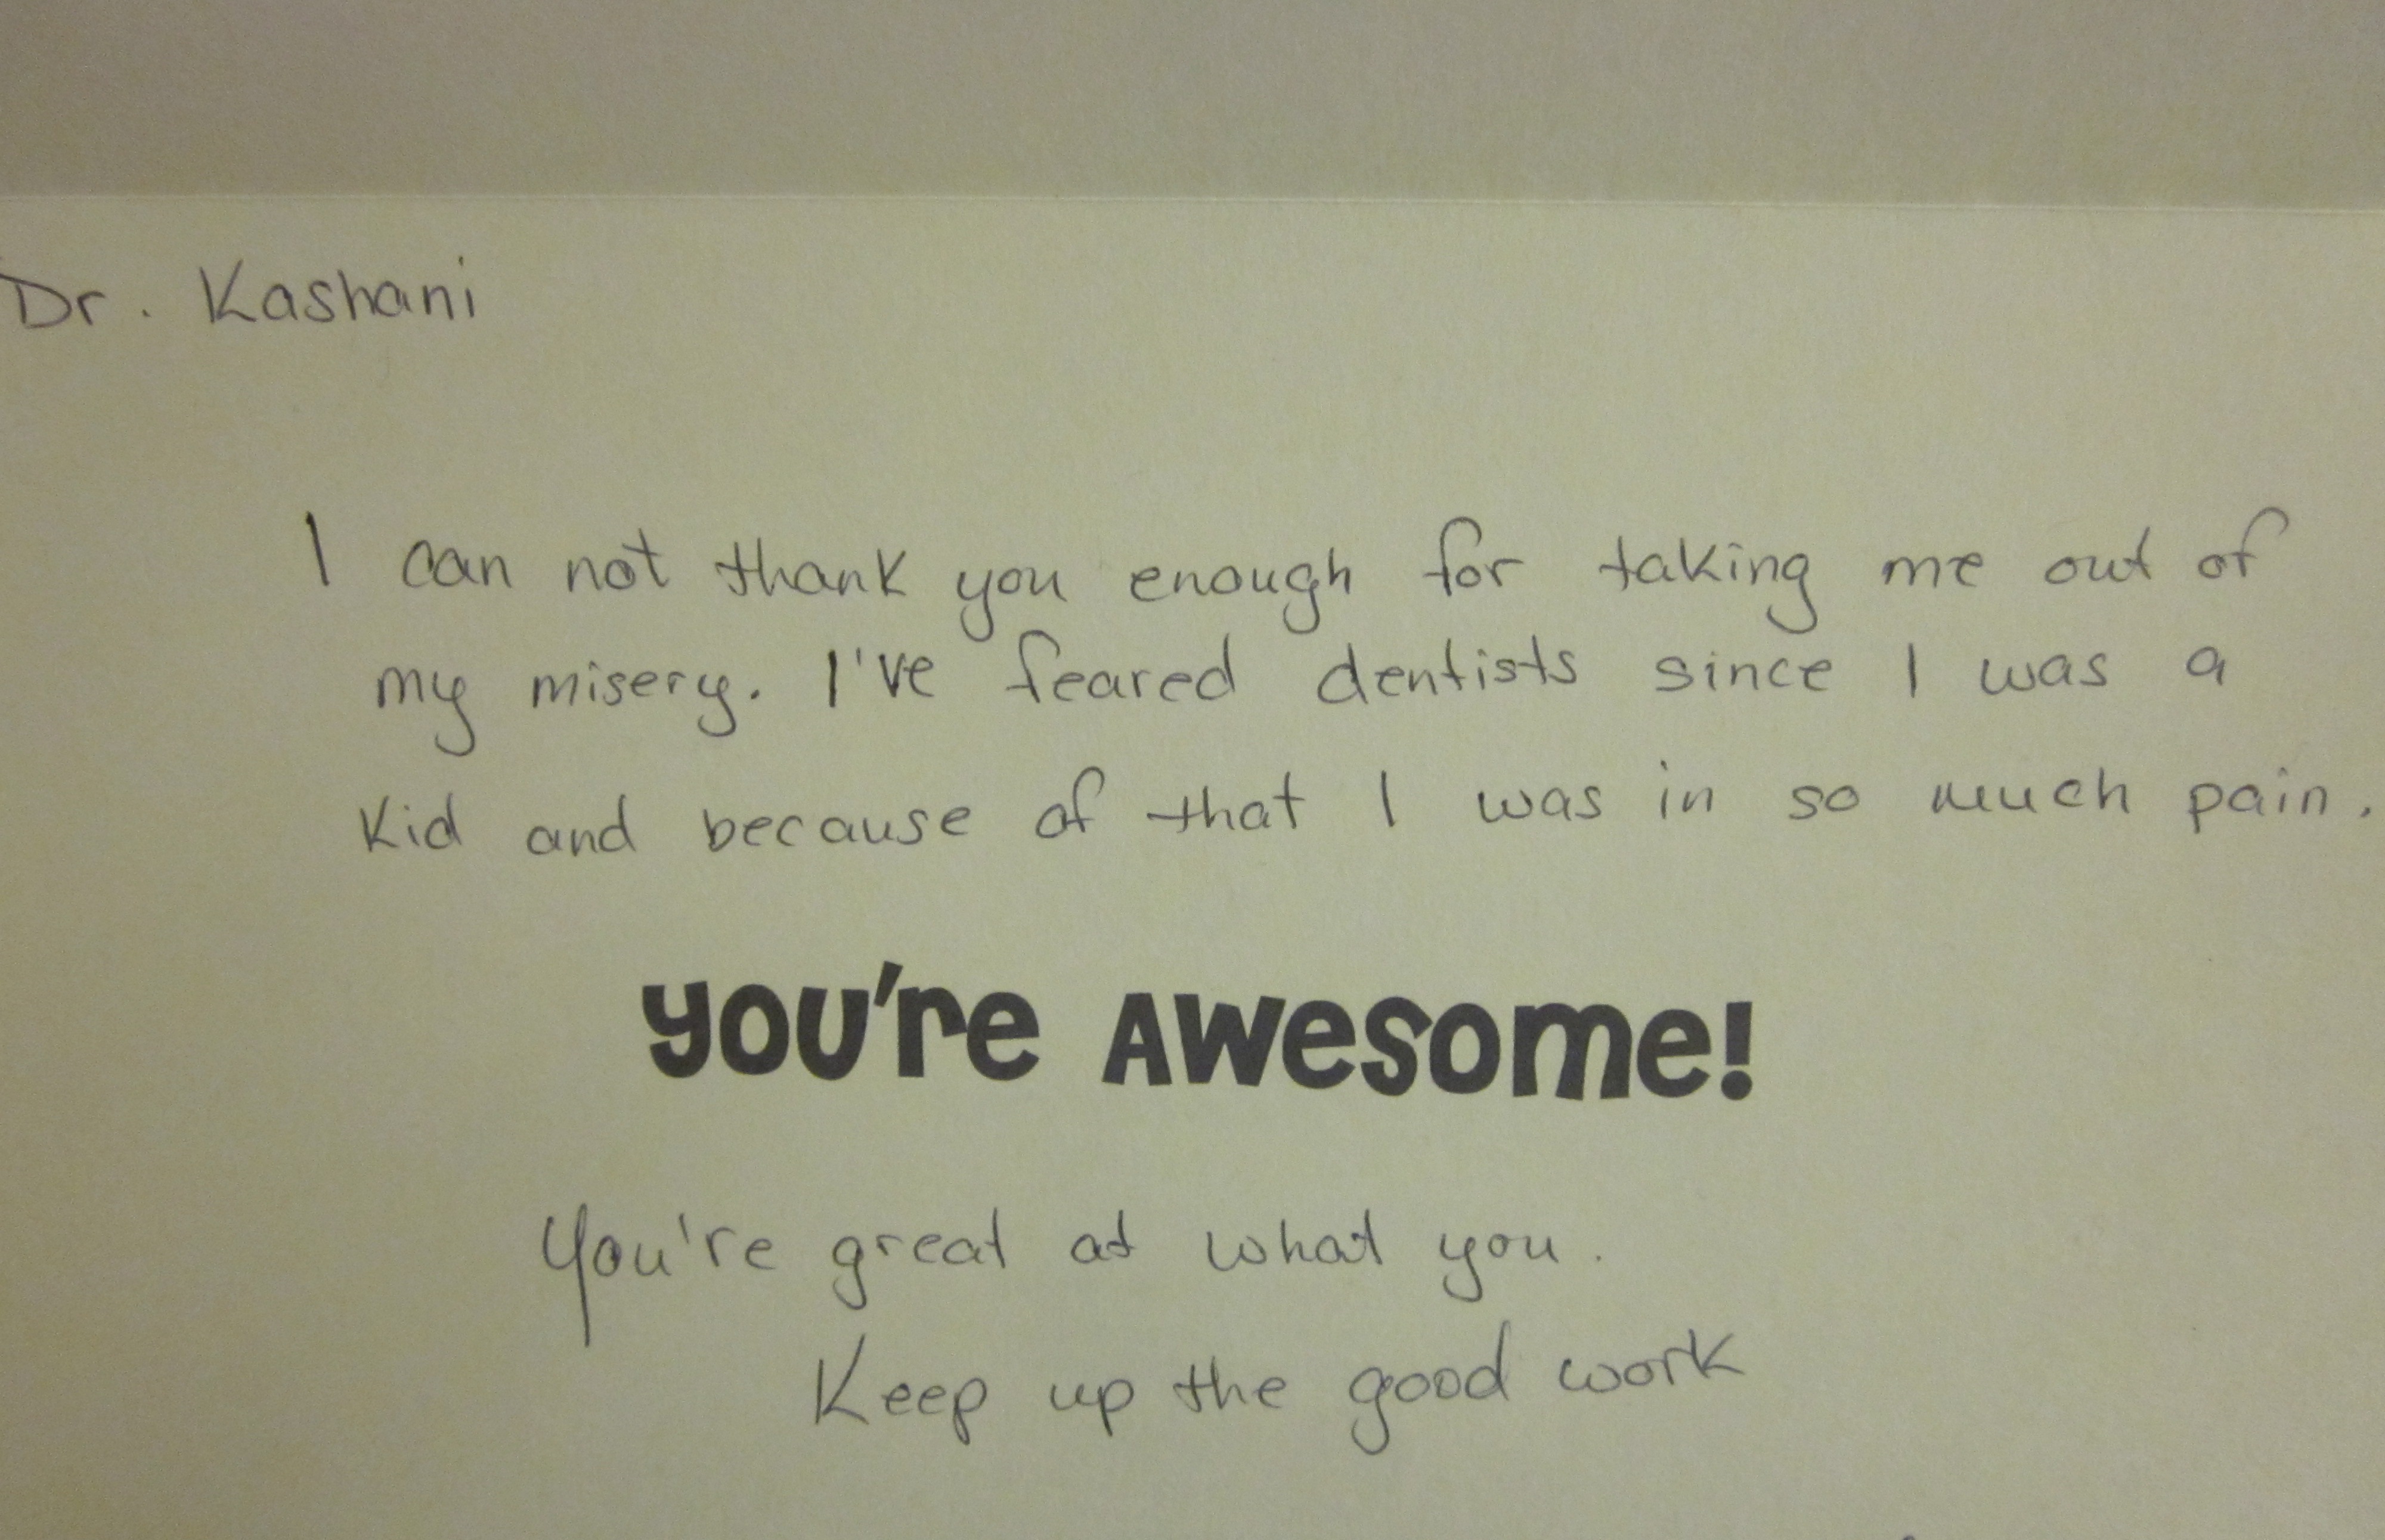 Dr. Kashani
I can not thank you enough for taking me out of
my misery. I've feared dentists since I was a
kid and because of that I was in so much pain.
you're Awesome!
You're great at what you.
Keep up the good work